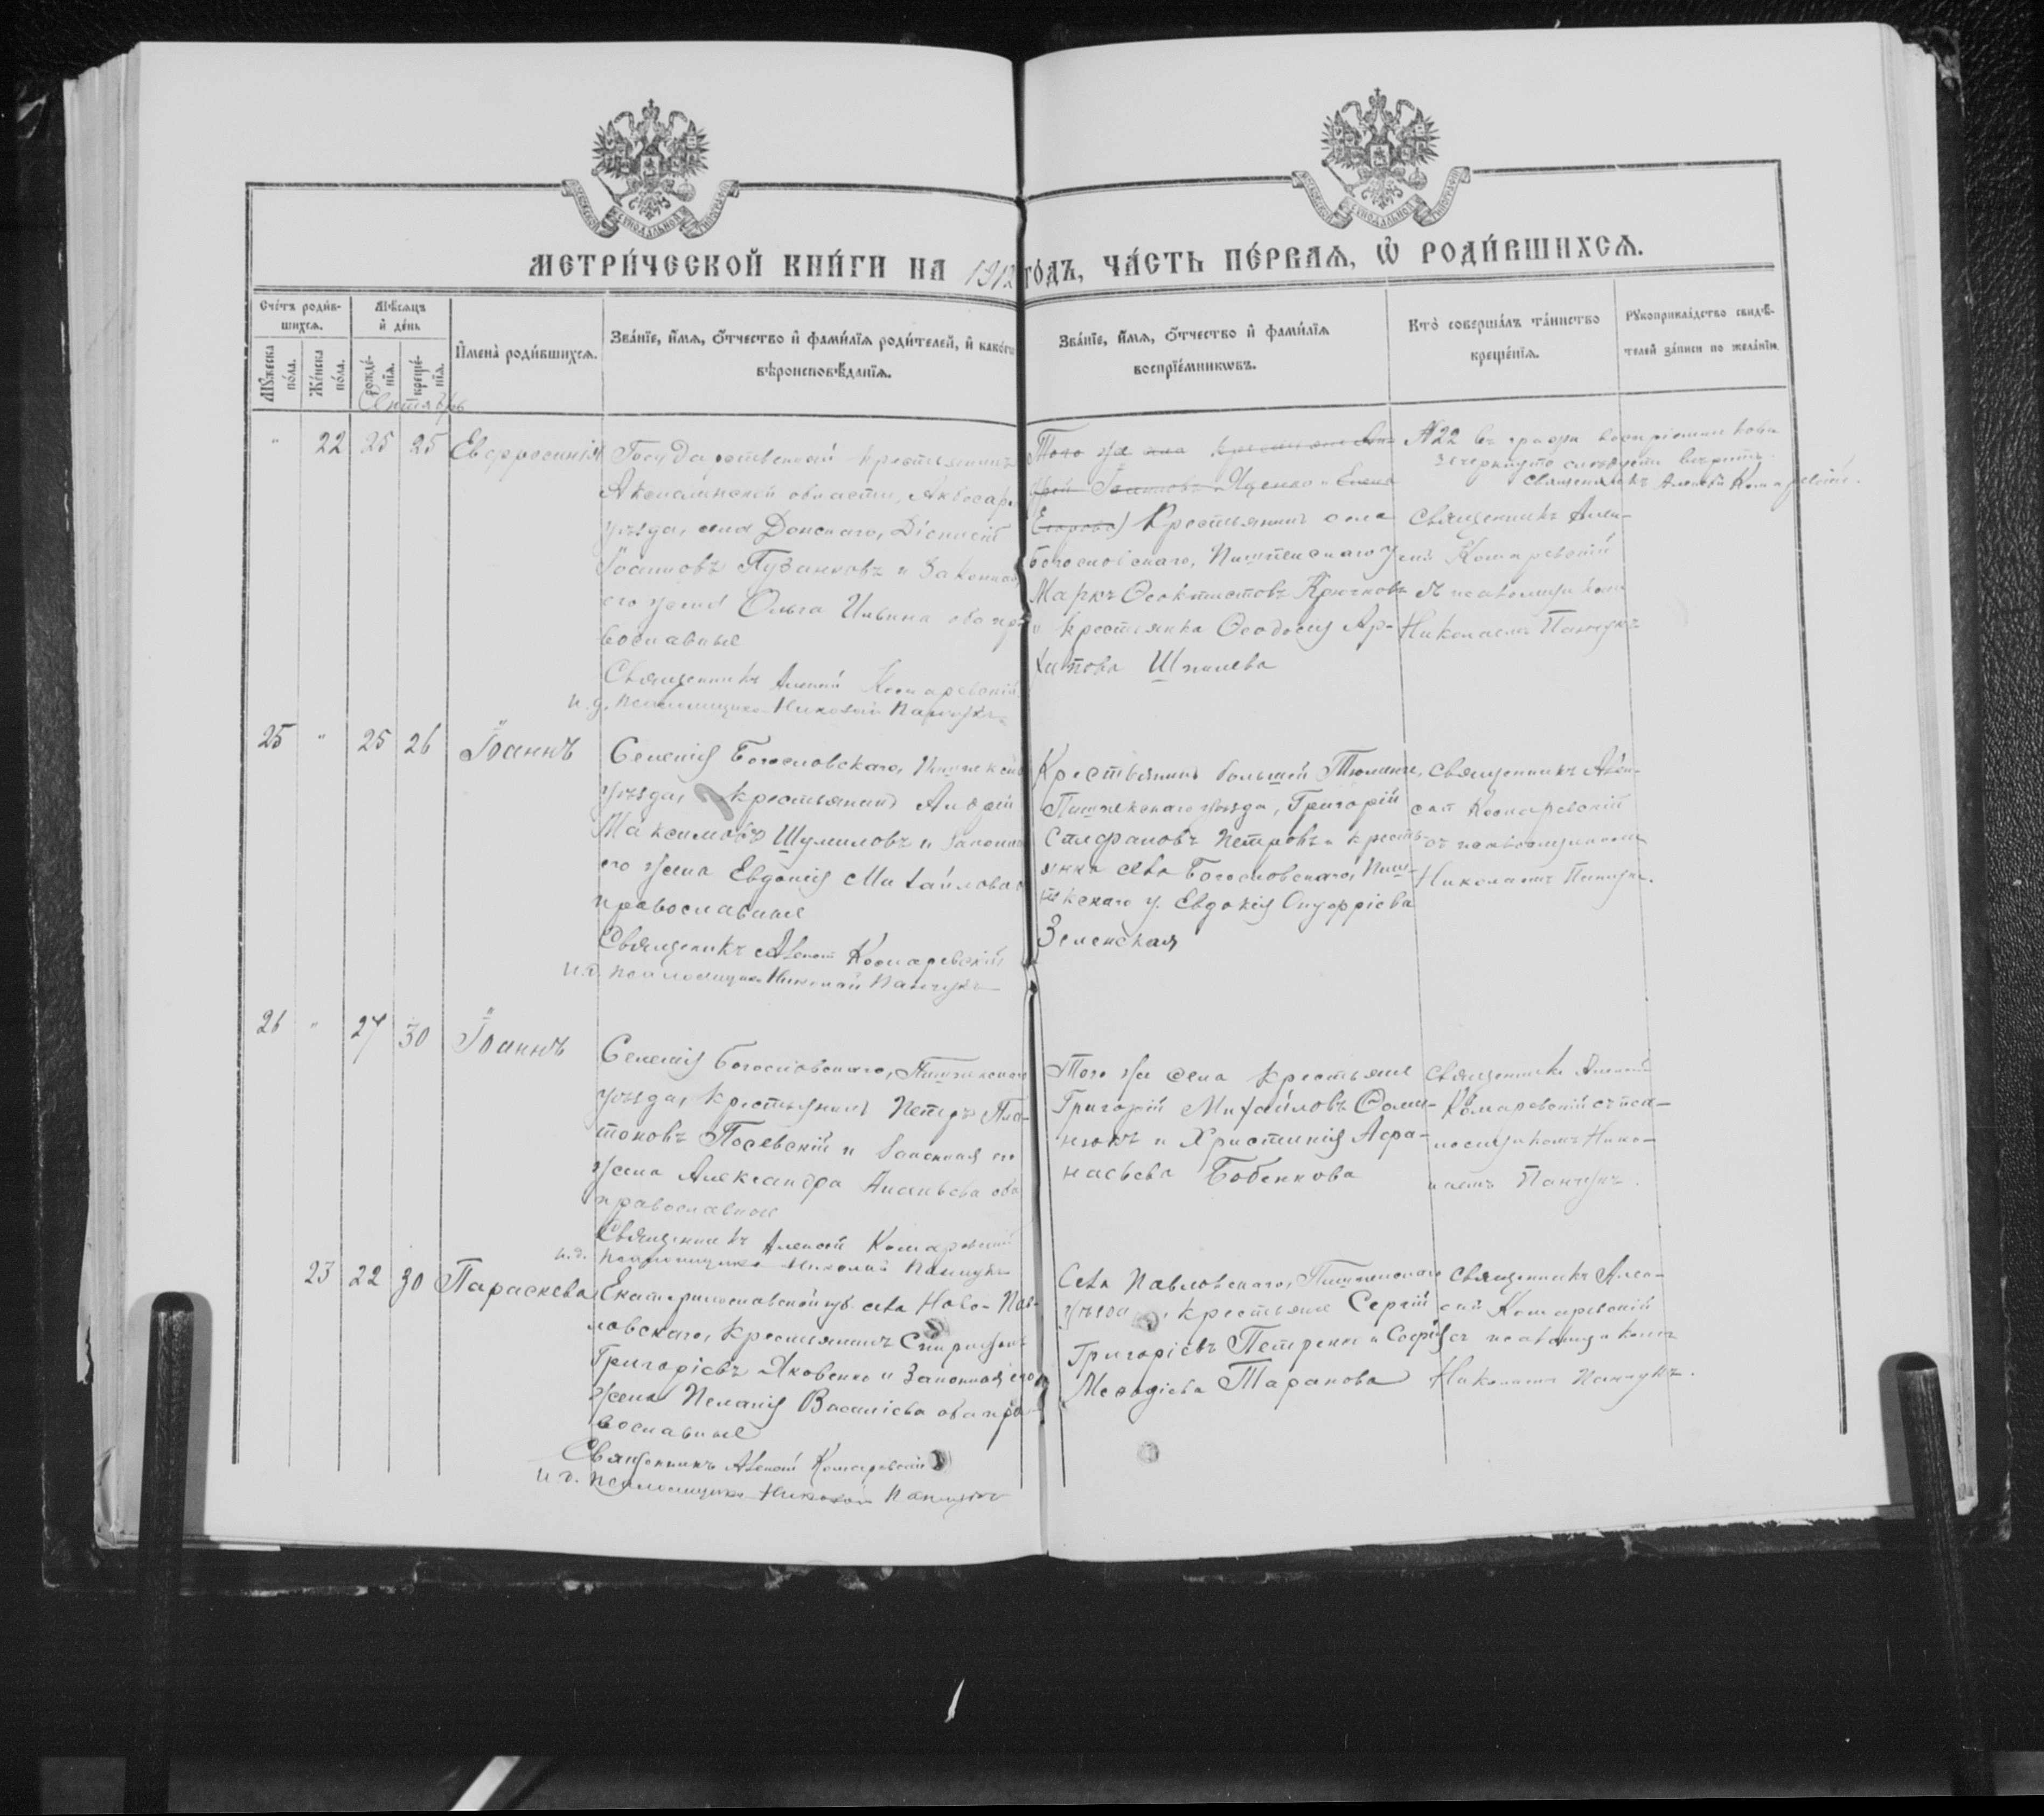 МЕТРИ́ЧЕСКОЙ КНИ́ГИ НА 1912 ГО́ДЪ, ЧА́СТЬ ПЕ́РВАѦ, Ѡ҆ РОДИ́ВШИХСѦ.
Сче́тъ роди́в-
шихсѧ.
Мꙋ́жеска по́ла.
Же́нска по́ла.
Мѣ́сѧцъ
и҆ де́нь
рожде́-
нїѧ.
креще́-
нїѧ.
И҆мена̀ роди́вшихсѧ.
Зва́нїе, и҆́мѧ, ѻ҆́тчество и҆ фами́лїѧ роди́телей, и҆ како́гѡ
вѣроисповѣ́данїѧ.
Зва́нїе, и҆́мѧ, ѻ҆́тчество и҆ фами́лїѧ
воспрїе́мникѡвъ.
Кто̀ соверша́лъ та́инство
креще́нїѧ.
Рꙋкоприкла́дство свидѣ́-
телей за́писи по жела́нїю.
Сентябрь
" 22 25 25 Евфросинія
Государственный крестьянинъ
уѣзда, села Донскаго, Діонисій
Іоанновъ Пузанковъ и законная
его жена Ольга Ильина оба пра
вославные
Священникъ Алексій Комаревскій
и. д. псаломщика Николай Панчукъ
Того же села крестьяне
Іоанновъ Яценко и Елена
Егорова) Крестьянинъ села
Богословскаго, Пишпекскаго у
Маркъ Ѳеоктистовъ Крючковъ
и крестьянка Ѳеодосія Ар-
хипова Шпилева
№22 въ графѣ воспріемниковъ
зачеркнуто слѣдуетъ вѣрить.
Священникъ Алексій Комаревскій.
Священникъ Алек-
сій Комаревскій
съ псаломщикомъ
Николаемъ Панчукъ
25 " 25 26 Іоаннъ
Селенія Богословскаго, Пишпекскаго
уѣзда, крестьянинъ Андрей
Максимовъ Шумиловъ и законная
его жена Евдокія Михайлова о
православные
Священникъ Алексій Комаревскій
и. д. псаломщика Николай Панчукъ
Крестьянинъ большой Токмакъ,
Пишпекскаго уѣзда, Григорій
Стефановъ Петровъ и кресть-
янка села Богословскаго, Пиш-
пекскаго у. Евдокія Онуфріева
Зеленская
Священникъ Алек-
сій Комаревскій
съ псаломщикомъ
Николаемъ Панчукъ.
26 " 27 30 Іоаннъ
Селенія Богословскаго, Пишпекскаго
уѣзда, крестьянинъ Петръ Пла-
тоновъ Посевскій и законная его
жена Александра Ананьева оба
православные
Священникъ Алексій Комаревскій
и. д. псаломщика Николай Панчукъ
Того же села крестьяне
Григорій Михайловъ Соми-
нюкъ и Христинія Аѳа-
насьева Бобенкова
Священникъ Алексій
Комаревскій съ пса-
ломщикомъ Нико-
лаемъ Панчукъ.
23 22 30 Параскева
Екатеринославской губ. села Ново-Пав-
ловскаго, крестьянинъ Спиридонъ
Григорьевъ Яковенко и законная его
жена Пелагія Василіева оба пра-
вославные
Священникъ Алексій Комаревскій
и. д. псаломщика Николай Панчукъ
Села Павловскаго, Пишпекскаго
уѣзда, крестьяне Сергій
Григорьевъ Петренко и Софія
Меѳодіева Таранова
Священникъ Алек-
сій Комаревскій
съ псаломщикомъ
Николаемъ Панчукъ.